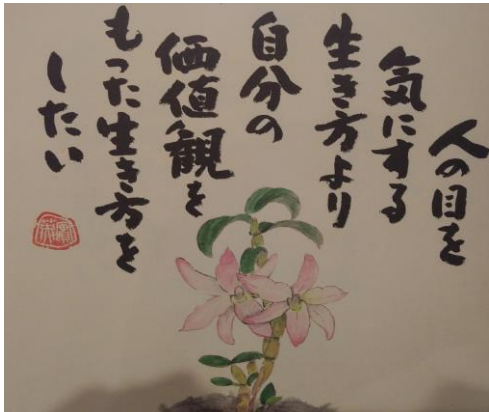 人の目を
気にする
生き方より
自分の
価値観を
もった生き方を
したい